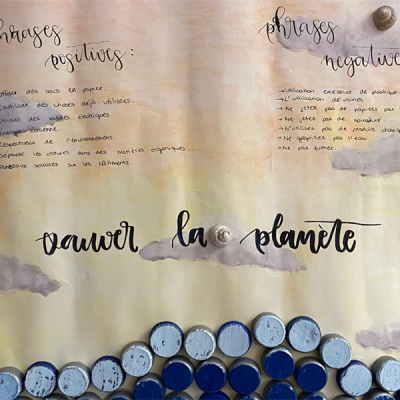 phrases
positives:
utiliser des sacs en papier.
utiliser des choses déjà utilisées.
utiliser des électriques
énergie éolienne.
respectueux de l'environnement.
séparer les ordures dans des matières organiques...
Panneaux solaires sur les bâtiments.
phrases
négatives
→ Utilisation excessive de plastique
→ L'utilisation d'usines.
→ Ne jetez pas de papiers par
→ Ne jetez pas de nourriture.
→ N'utilisez pas de produits chimiq
→ Ne gaspillez pas l'eau.
→ Ne pas fumer.
sauver la planète